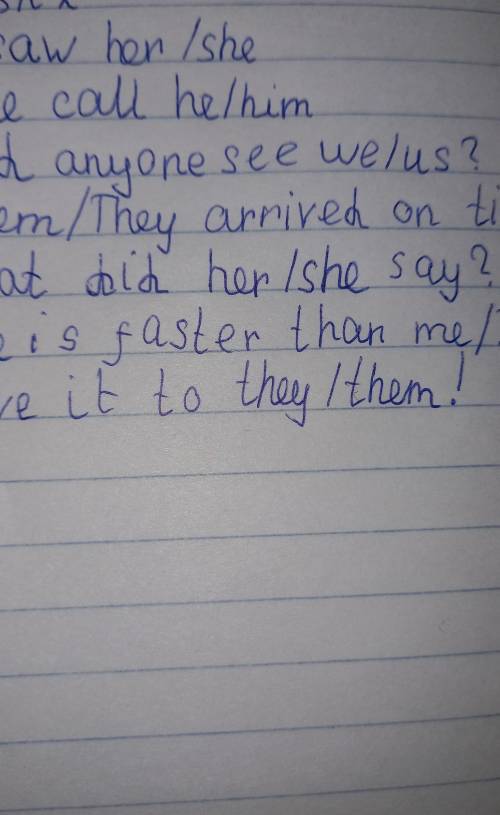 saw her/she
call he/him
anyone see we/us?
em/They arrived on ti
at did her/she say?
is faster than me/
it to they/them!